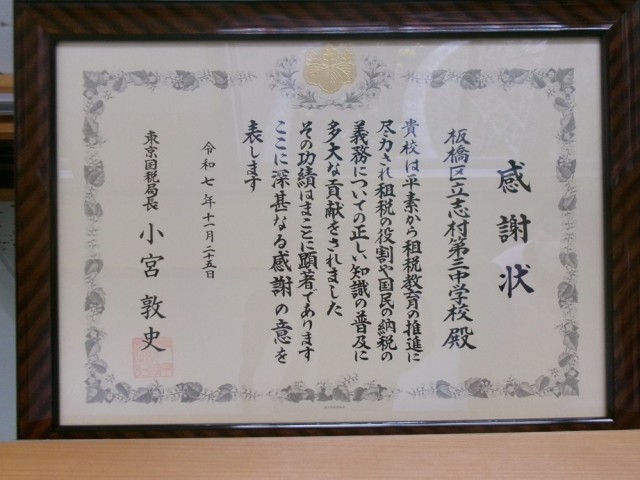 感謝状
板橋区立志村第三中学校 殿
貴校は平素から租税教育の推進に
尽力され租税の役割や国民の納税の
義務についての正しい知識の普及に
多大な貢献をされました
その功績はまことに顕著であります
ここに深甚なる感謝の意を
表します
令和七年十一月二十五日
東京国税局長 小宮敦史